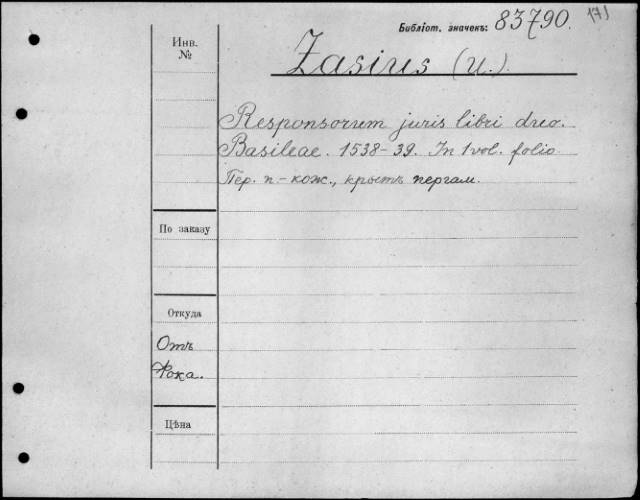 Библіот. значекъ: 83790. 171
Инв.
№
Zasius (U.).
Responsorum juris libri duo.
Basileae. 1538-39. In 1 vol. folio
Пер. п.-кож., крыть пергам.
По заказу
Откуда
Отъ
Фока.
Цѣна